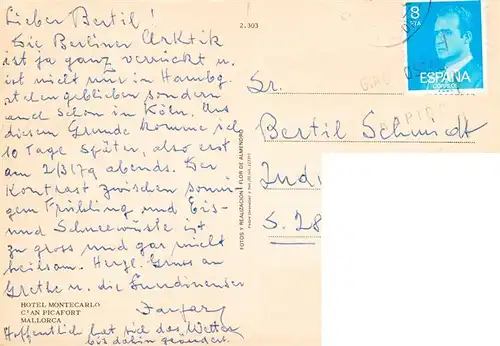 Lieber Bertil!
Die Berliner Arktik
ist ja ganz verrückt u.
ist nicht nur in Hambg.
stehengeblieben sondern
auch schon in Köln. Aus
diesem Grunde komme ich
10 Tage später, also erst
am 2/3 79 abends. Der
Kontrast zwischen sonni-
gem Frühling und Eis-
und Schneewüste ist
zu gross und gar nicht
heilsam. Herzl. Gruss an
Grethe u. die
HOTEL MONTECARLO
C'AN PICAFORT
MALLORCA
Hoffentlich hat sich das Wetter
bis dahin geändert.
2.303
FOTOS Y REALIZACION FLOR DE ALMENDRO
8
PTA
ESPAÑA
CORREOS
Sr.
Bertil Schmidt
Indi
S. 28